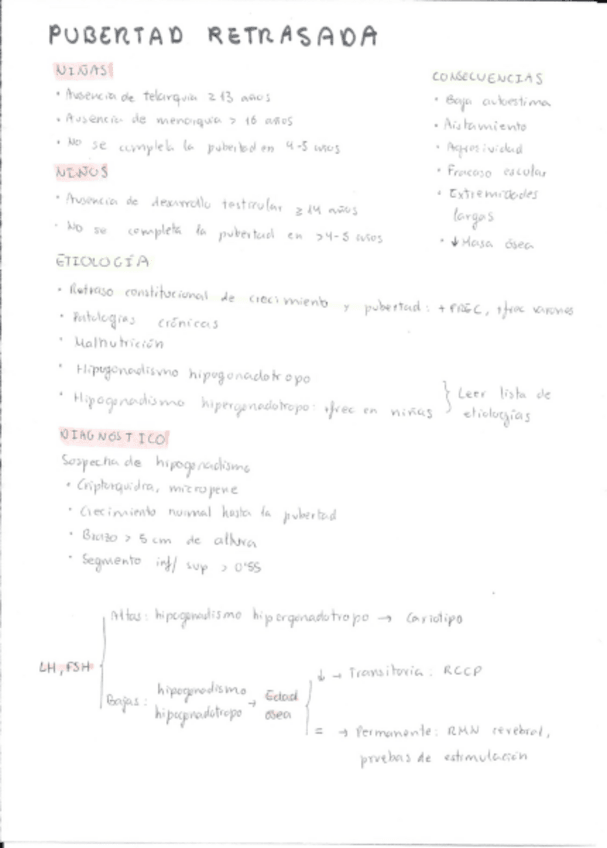 PUBERTAD RETRASADA
NIÑAS
• Ausencia de telarquia ≥ 13 años
• Ausencia de menarquia > 16 años
• No se completa la pubertad en 4-5 años
NIÑOS
• Ausencia de desarrollo testicular ≥ 14 años
• No se completa la pubertad en >4-5 años
CONSECUENCIAS
• Baja autoestima
• Aislamiento
• Agresividad
• Fracaso escolar
• Extremidades
largas
• ↓ Masa ósea
ETIOLOGÍA
• Retraso constitucional de crecimiento y pubertad: + FREC, +frec varones
• Patologías crónicas
• Malnutrición
• Hipogonadismo hipogonadotropo
• Hipogonadismo hipergonadotropo: +frec en niñas
} Leer lista de
etiologías
DIAGNÓSTICO
Sospecha de hipogonadismo
• Criptorquidia, micropene
• Crecimiento normal hasta la pubertad
• Brazo > 5 cm de altura
• Segmento inf/ sup > 0'55
LH, FSH
Altas: hipogonadismo hipergonadotropo → Cariotipo
Bajas: hipogonadismo
hipogonadotropo → Edad
ósea
↓ → Transitoria: RCCP
= → Permanente: RMN cerebral,
pruebas de estimulación